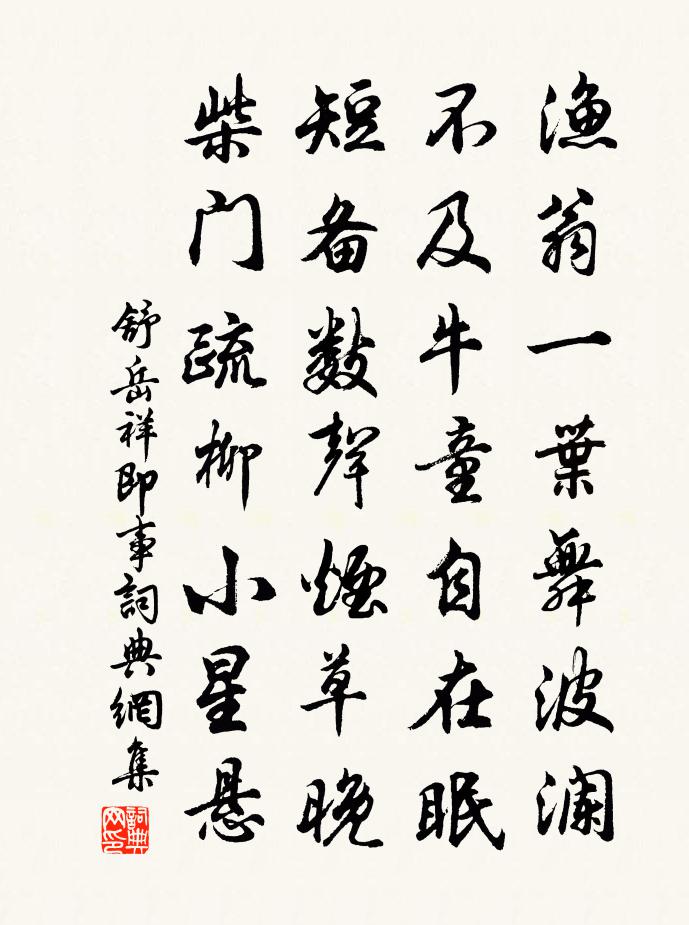 渔翁一葉舞波澜
不及牛童自在眠
短笛数聲煙草晚
柴门疏柳小星悬
舒岳祥即事詞典網集
詞典网印